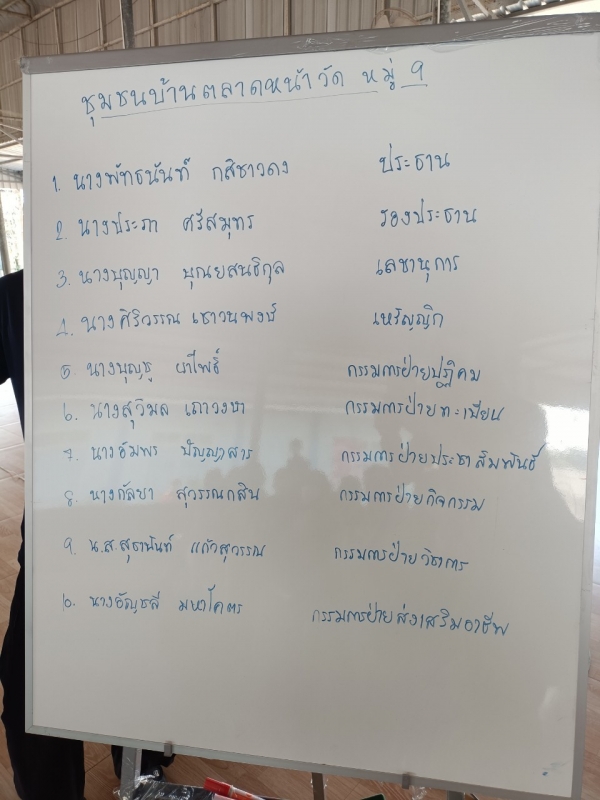 ชุมชนบ้านตลาดหน้าวัด หมู่ 9
1. นางพัทธนันท์ กสิชาวดง ประธาน
2. นางประภา ศรีสมุทร รองประธาน
3. นางบุญญา บุณยสนธิกุล เลขานุการ
4. นางศิริวรรณ เชาวนพงษ์ เหรัญญิก
5. นางบุญชู ผาโพธิ์ กรรมการฝ่ายปฏิคม
6. นางสุวิมล เถาวงษา กรรมการฝ่ายทะเบียน
7. นางอัมพร ปัญญาสาร กรรมการฝ่ายประชาสัมพันธ์
8. นางกัลยา สุวรรณกสิน กรรมการฝ่ายกิจกรรม
9. น.ส.สุธานันท์ แก้วสุวรรณ กรรมการฝ่ายวิชาการ
10. นางธัญชลี มหาโคตร กรรมการฝ่ายส่งเสริมอาชีพ